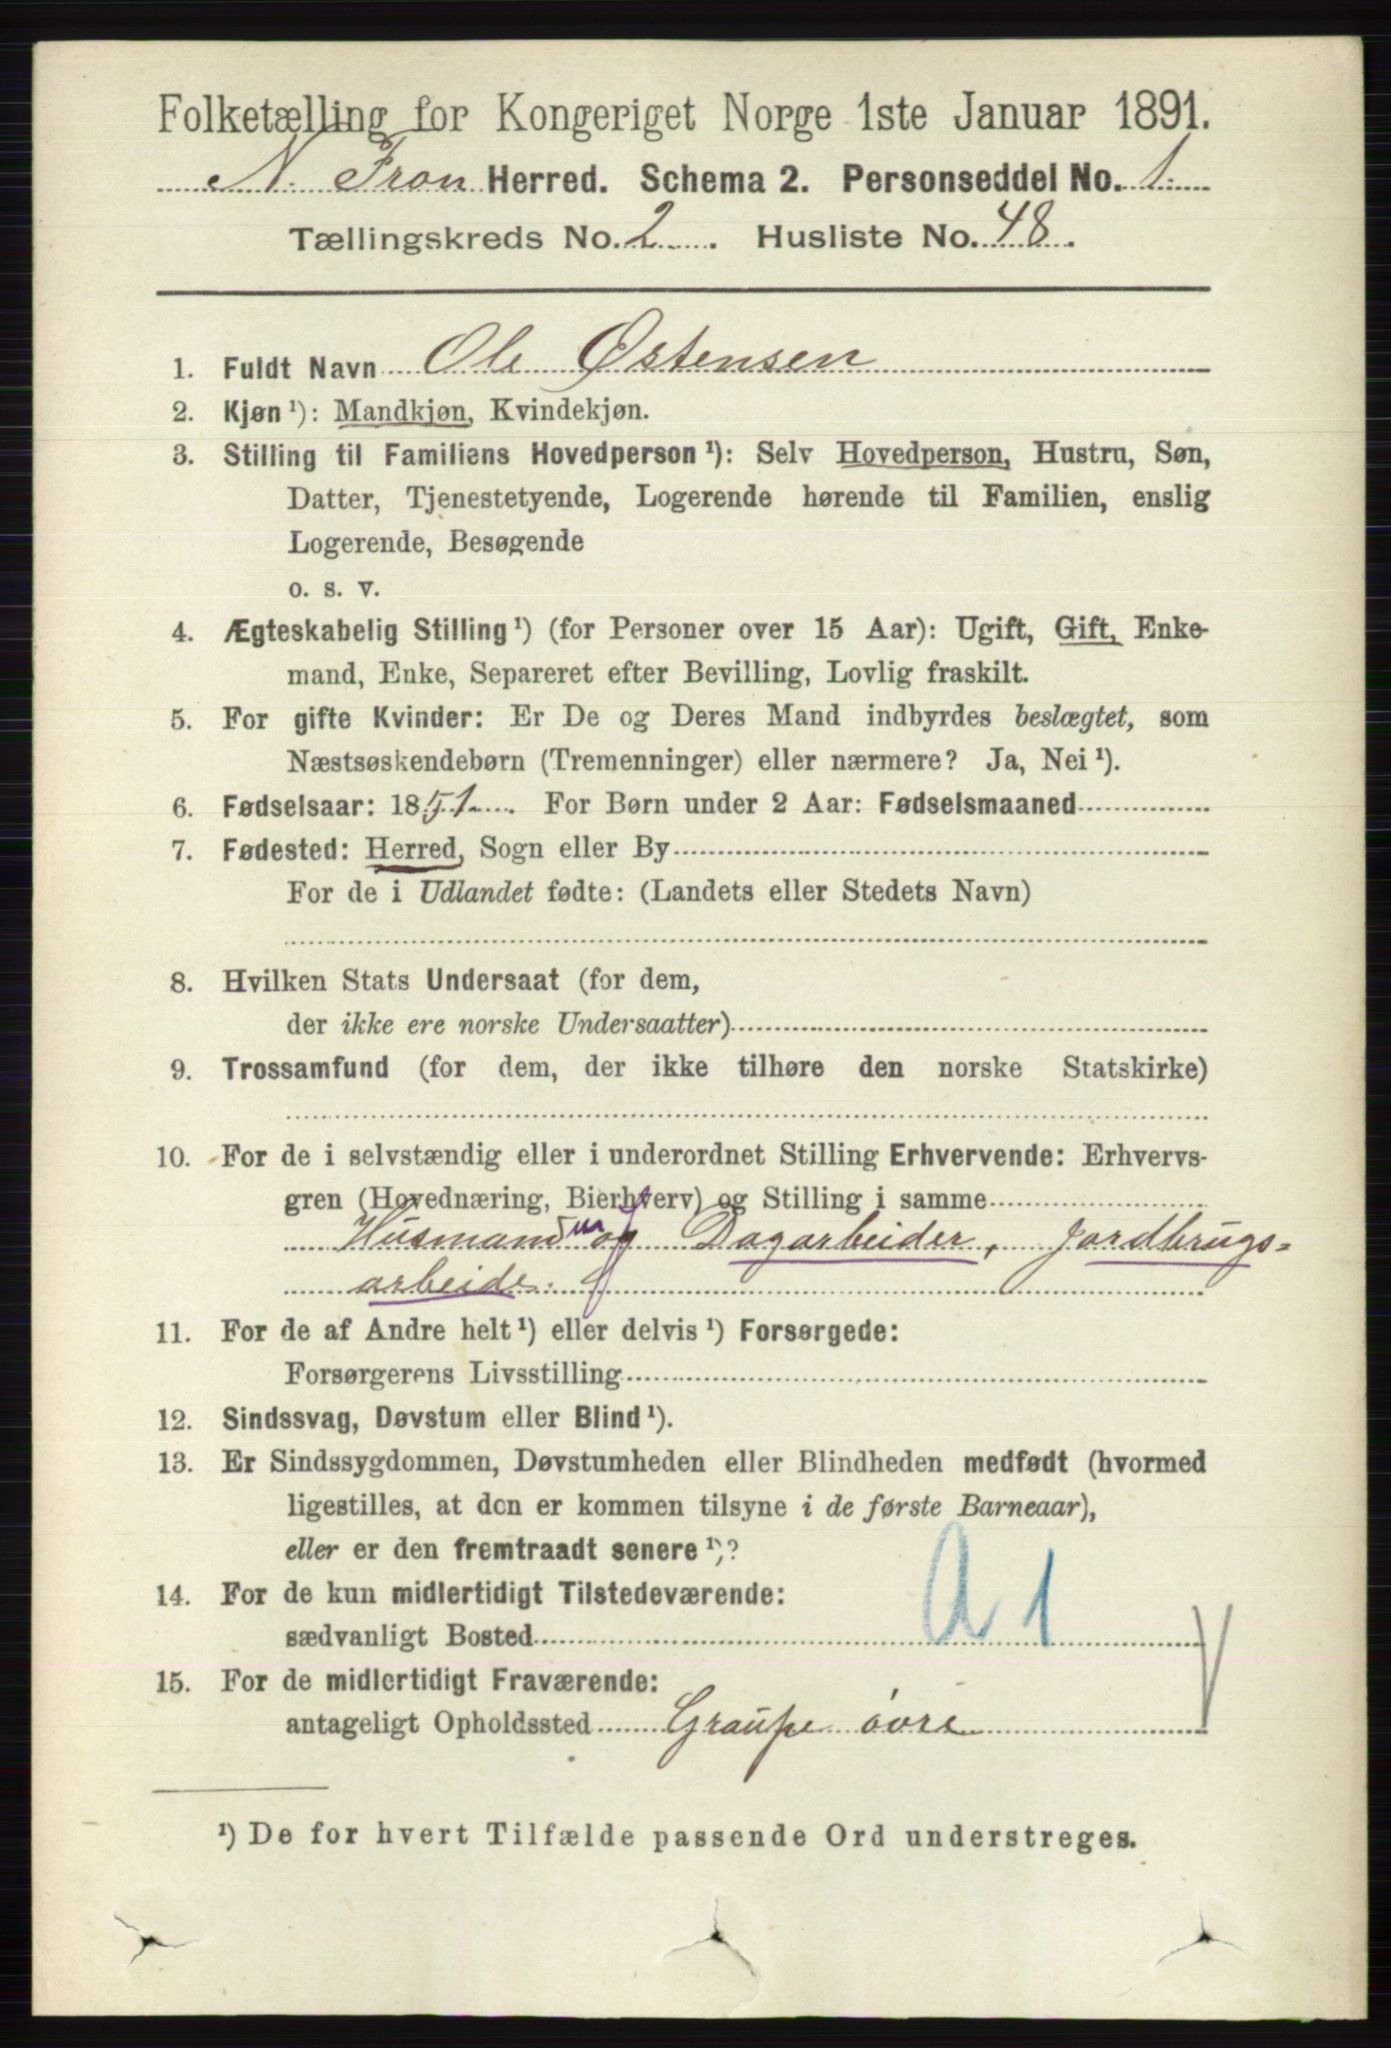 Folketælling for Kongeriget Norge 1ste Januar 1891.
N. Fron Herred. Schema 2. Personseddel No. 1.
Tællingskreds No. 2. Husliste No. 48.
1. Fuldt Navn Ole Østensen
2. Kjøn ¹): Mandkjøn, Kvindekjøn.
3. Stilling til Familiens Hovedperson ¹): Selv Hovedperson, Hustru, Søn,
Datter, Tjenestetyende, Logerende hørende til Familien, enslig
Logerende, Besøgende
o. s. v.
4. Ægteskabelig Stilling ¹) (for Personer over 15 Aar): Ugift, Gift, Enke-
mand, Enke, Separeret efter Bevilling, Lovlig fraskilt.
5. For gifte Kvinder: Er De og Deres Mand indbyrdes beslægtet, som
Næstsøskendebørn (Tremenninger) eller nærmere? Ja, Nei ¹).
6. Fødselsaar: 1851. For Børn under 2 Aar: Fødselsmaaned
7. Fødested: Herred, Sogn eller By
For de i Udlandet fødte: (Landets eller Stedets Navn)
8. Hvilken Stats Undersaat (for dem,
der ikke ere norske Undersaatter)
9. Trossamfund (for dem, der ikke tilhøre den norske Statskirke)
10. For de i selvstændig eller i underordnet Stilling Erhvervende: Erhvervs-
gren (Hovednæring, Bierhverv) og Stilling i samme
Husmand og Dagarbeider, Jordbrugs=
arbeide.
11. For de af Andre helt ¹) eller delvis ¹) Forsørgede:
Forsørgerens Livsstilling
12. Sindssvag, Døvstum eller Blind ¹).
13. Er Sindssygdommen, Døvstumheden eller Blindheden medfødt (hvormed
ligestilles, at den er kommen tilsyne i de første Barneaar),
eller er den fremtraadt senere ¹)?
14. For de kun midlertidigt Tilstedeværende:
sædvanligt Bosted
a 1
15. For de midlertidigt Fraværende:
antageligt Opholdssted Graupe övre
¹) De for hvert Tilfælde passende Ord understreges.